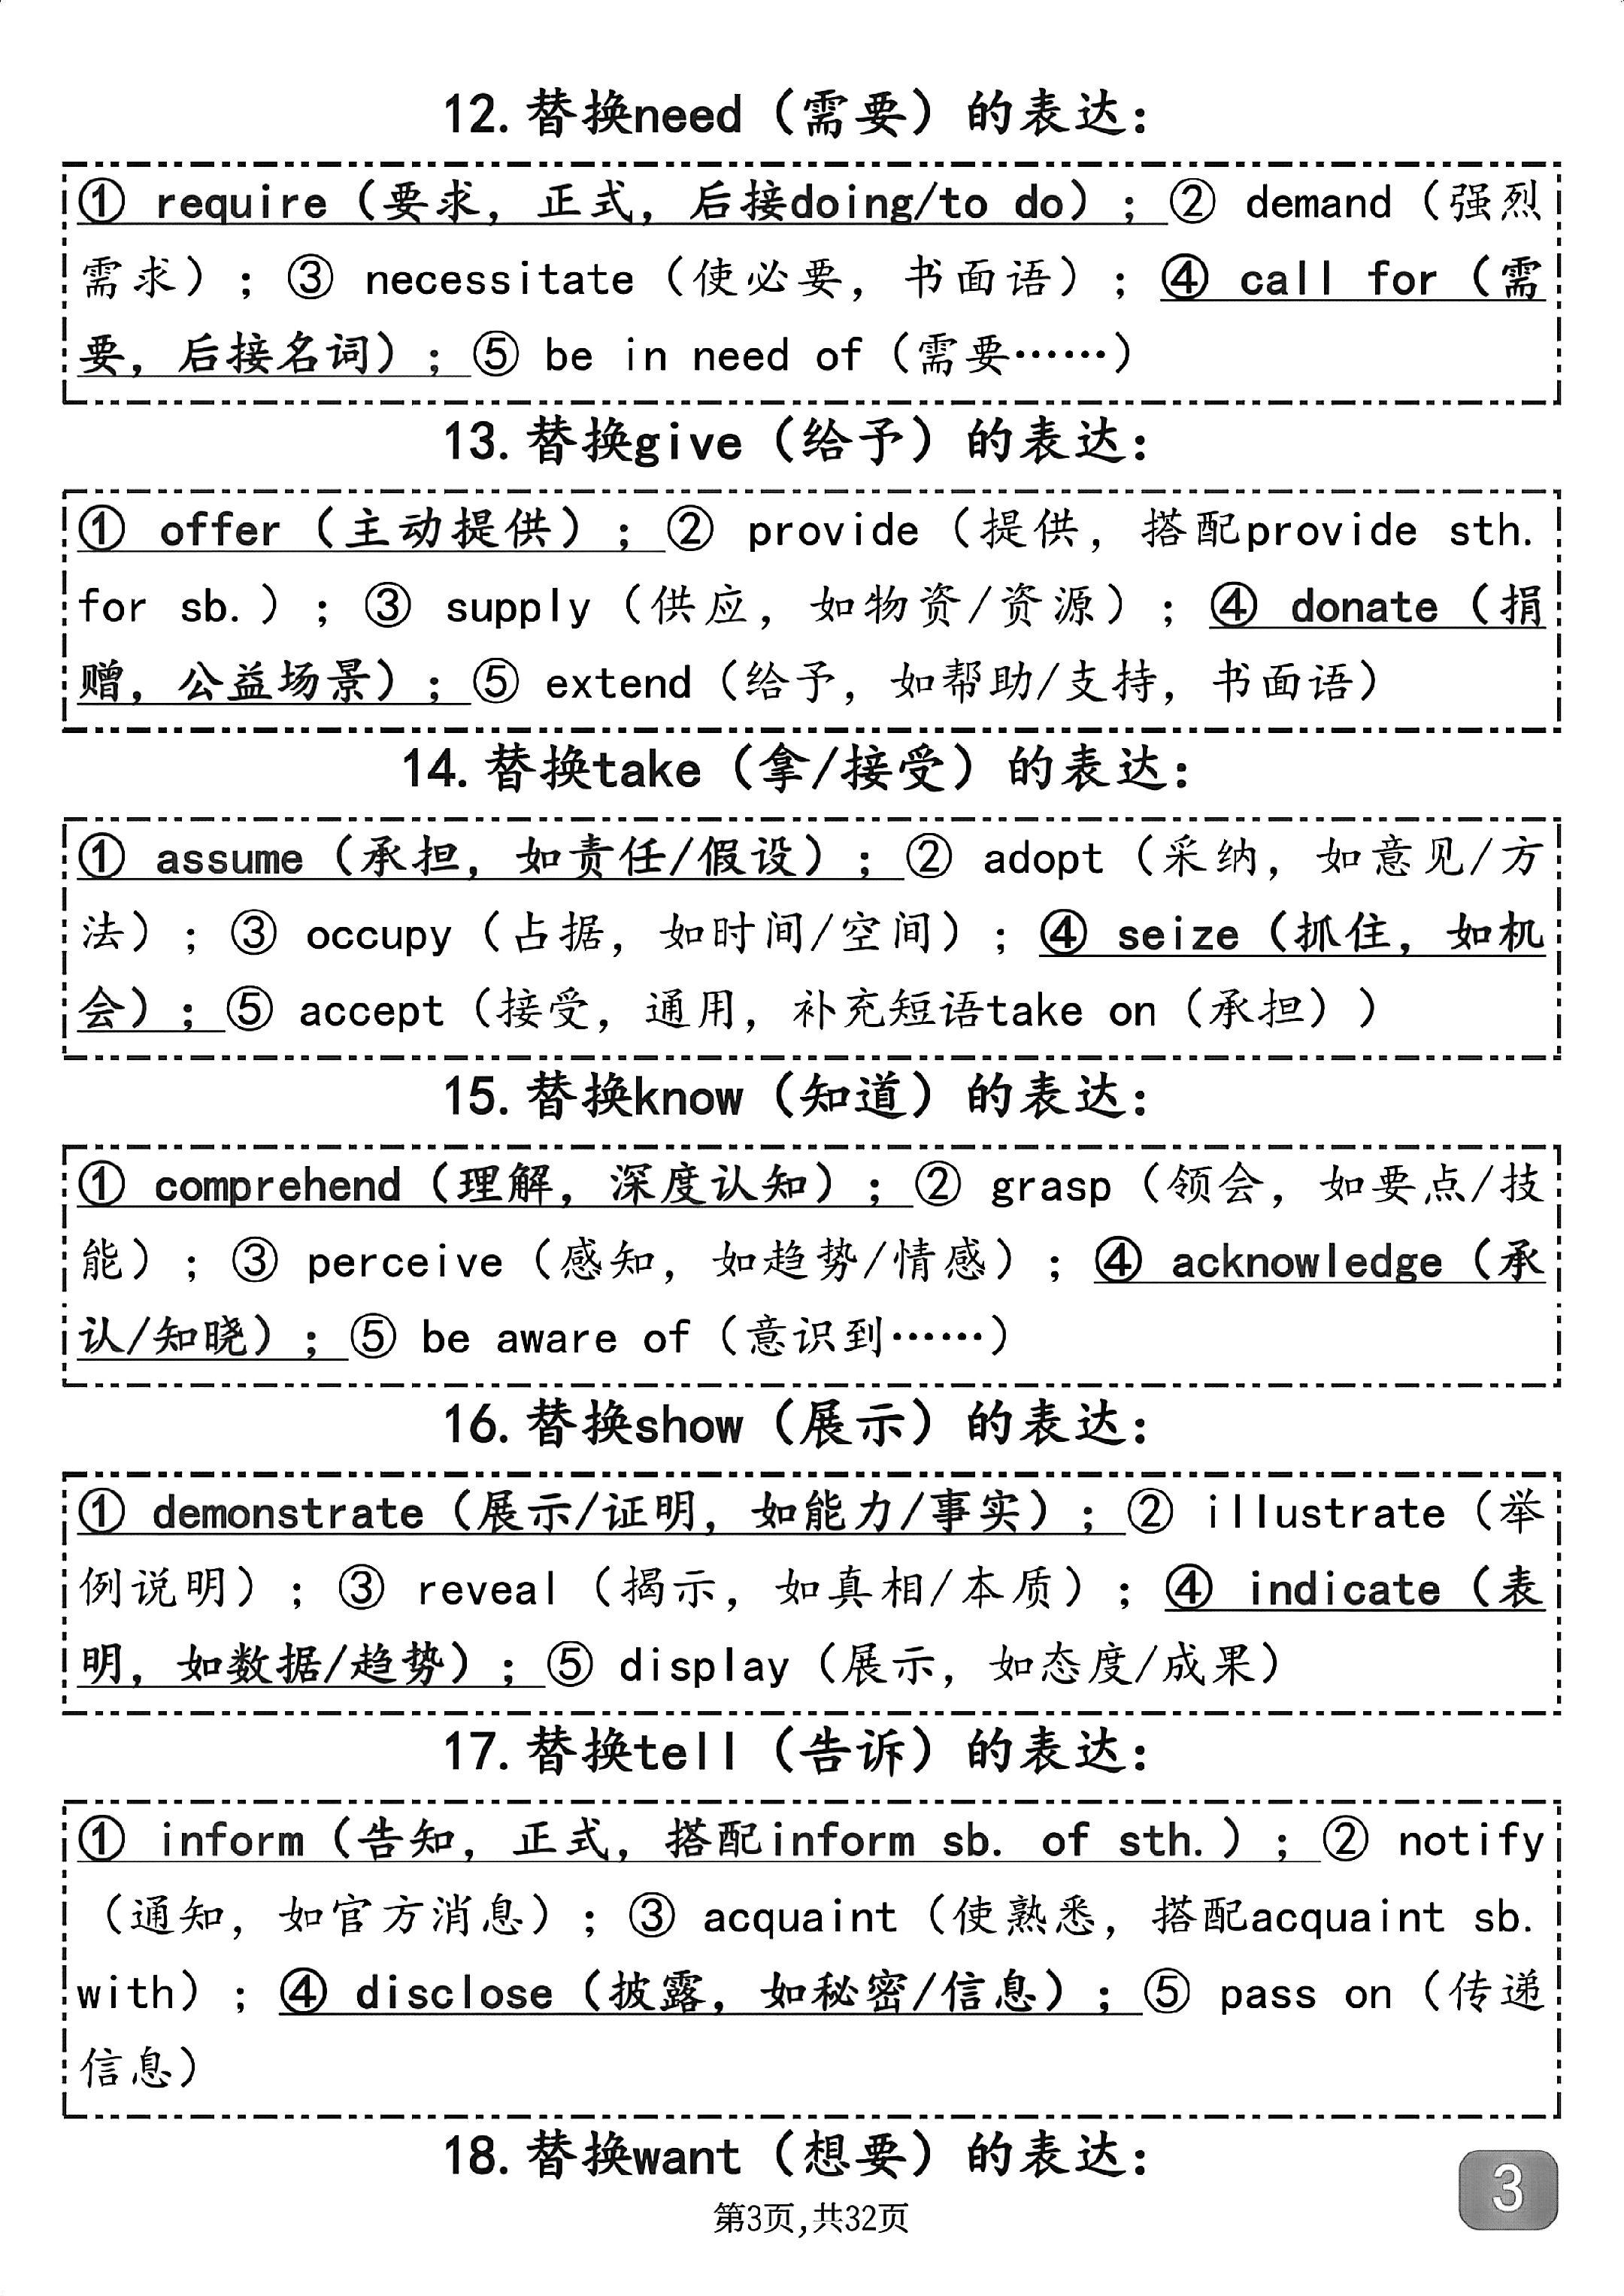 12.替换need（需要）的表达：
① require（要求，正式，后接doing/to do）；② demand（强烈
需求）；③ necessitate（使必要，书面语）；④ call for（需
要，后接名词）；⑤ be in need of（需要……）
13.替换give（给予）的表达：
① offer（主动提供）；② provide（提供，搭配provide sth.
for sb.）；③ supply（供应，如物资/资源）；④ donate（捐
赠，公益场景）；⑤ extend（给予，如帮助/支持，书面语）
14.替换take（拿/接受）的表达：
① assume（承担，如责任/假设）；② adopt（采纳，如意见/方
法）；③ occupy（占据，如时间/空间）；④ seize（抓住，如机
会）；⑤ accept（接受，通用，补充短语take on（承担））
15.替换know（知道）的表达：
① comprehend（理解，深度认知）；② grasp（领会，如要点/技
能）；③ perceive（感知，如趋势/情感）；④ acknowledge（承
认/知晓）；⑤ be aware of（意识到……）
16.替换show（展示）的表达：
① demonstrate（展示/证明，如能力/事实）；② illustrate（举
例说明）；③ reveal（揭示，如真相/本质）；④ indicate（表
明，如数据/趋势）；⑤ display（展示，如态度/成果）
17.替换tell（告诉）的表达：
① inform（告知，正式，搭配inform sb. of sth.）；② notify
（通知，如官方消息）；③ acquaint（使熟悉，搭配acquaint sb.
with）；④ disclose（披露，如秘密/信息）；⑤ pass on（传递
信息）
18.替换want（想要）的表达：
第3页,共32页
3